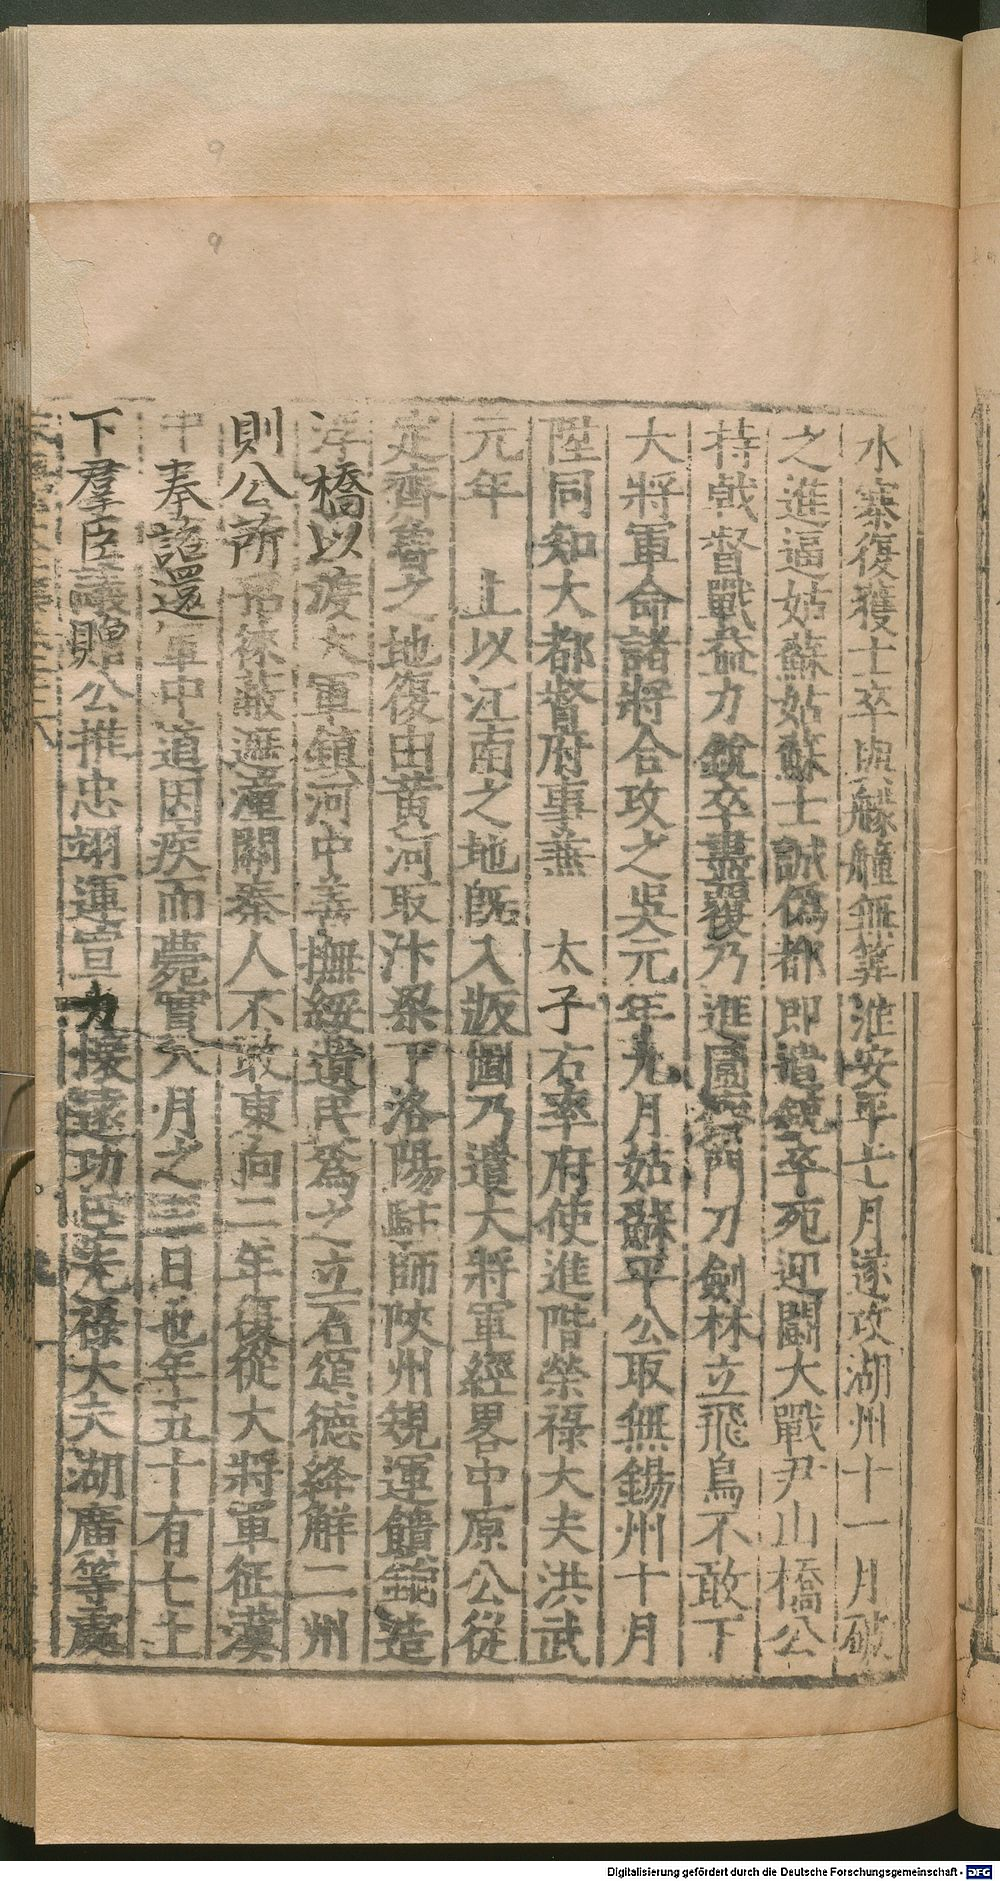 水寨復獲士卒與艨艟無筭淮安平七月遂攻湖州十一月破
之進逼姑蘇姑蘇士誠僞都即遣銳卒死迎鬭大戰尹山橋公
持戟督戰益力銳卒盡覆乃進圍門刀劍林立飛鳥不敢下
大將軍命諸將合攻之吳元年九月姑蘇平公取無錫州十月
陞同知大都督府事兼 太子右率府使進階榮祿大夫洪武
元年 上以江南之地既入版圖乃遣大將軍經畧中原公從
定齊魯之地復由黃河取汴梁下洛陽駐師陝州規運饋餉造
浮橋以渡大軍鎮河中善撫綏遺民爲之立石頌德絳解二州
則公所招徠蔽遮潼關秦人不敢東向二年復從大將軍征漢
中奉詔還軍中道因疾而薨實八月之三日也年五十有七上
下羣臣議贈公推忠翊運宣力懷遠功臣光祿大夫湖廣等處
9
9
Digitalisierung gefördert durch die Deutsche Forschungsgemeinschaft - DFG